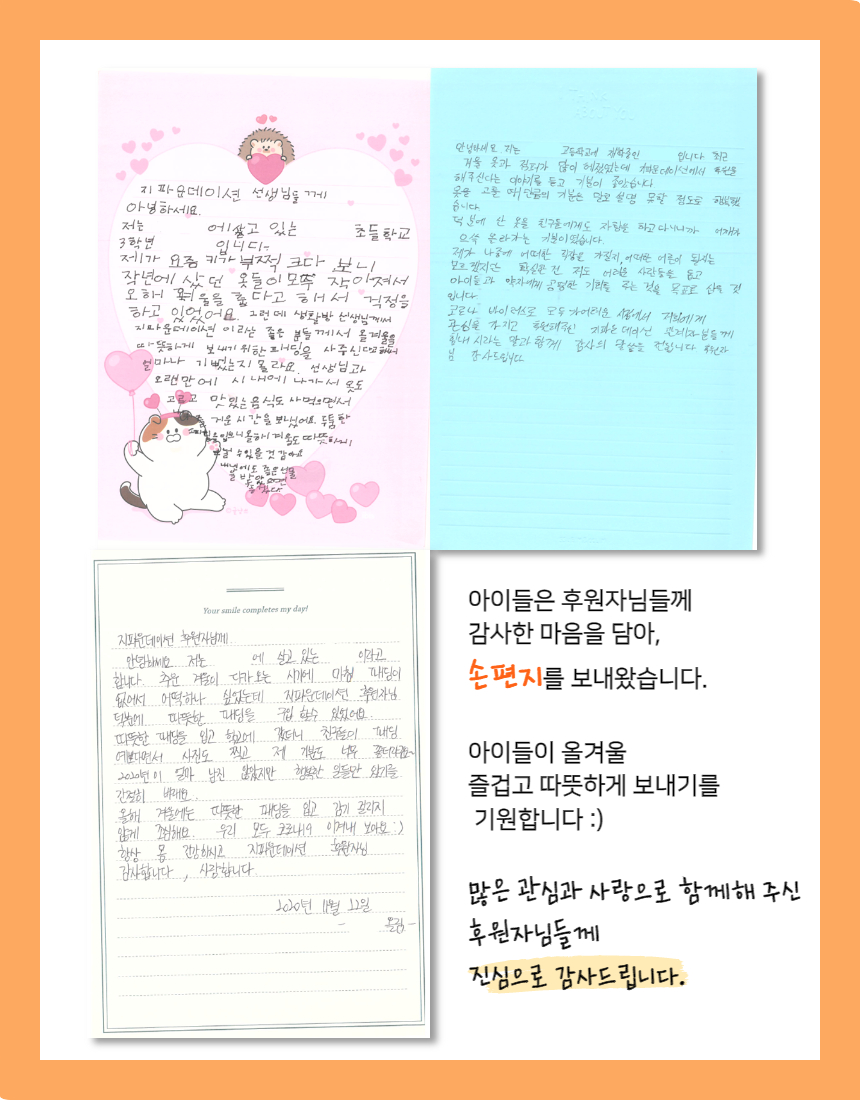 지파운데이션 선생님들께
안녕하세요.
저는 에 살고 있는 초등학교
3학년 입니다.
제가 요즘 키가 부쩍 크다 보니
작년에 샀던 옷들이 모두 작아져서
올해 겨울을 춥다고 해서 걱정을
하고 있었어요. 그런데 생활방 선생님께서
지파운데이션 이라는 좋은 분들께서 올겨울을
따뜻하게 보내기 위한 패딩을 사주신다고해서
얼마나 기뻤는지 몰라요. 선생님과
오랜만에 시내에 나가서 옷도
고르고 맛있는 음식도 사먹으면서
거운 시간을 보냈어요. 두툼한
올해 겨울도 따뜻하게
수 있을 것 같아요
에도 좋은 선물
을 받았으면
안녕하세요 저는 고등학교에 재학중인 입니다 최근
겨울 옷과 패터가 많이 해졌었는데 지파운데이션에서 후원을
해주신다는 이야기를 듣고 기분이 좋았습니다
옷을 고를 때 만큼의 기분은 말로 설명 못할 정도로 행복했
습니다.
덕분에 산 옷을 친구들에게도 자랑을 하고 다니니까 어깨가
으쓱 올라가는 기분이었습니다.
제가 나중에 어떠한 직업을 가질지, 어떠한 어른이 될지는
모르겠지만 확실한건 저도 어려운 사람들을 돕고
아이들과 약자에게 공평한 기회를 주는 것을 목표로 삼을 것
입니다.
코로나 바이러스로 모두가 어려운 시점에서 저희에게
관심을 가지고 후원해주신 지파운데이션 관계자분들께
힘내시라는 말과 함께 감사의 말씀을 전합니다 후원자
님 감사드립니다
Your smile completes my day!
지파운데이션 후원자님께
안녕하세요 저는 에 살고 있는 이라고
합니다. 추운 겨울이 다가오는 시기에 마침 패딩이
없어서 어떡하나 싶었는데 지파운데이션 후원자님
덕분에 따뜻한 패딩을 구입 할수 있었어요.
따뜻한 패딩을 입고 학교에 갔더니 친구들이 패딩
예쁘다면서 사진도 찍고 제 기분도 너무 좋더라구요~
2020년이 얼마 남진 않았지만 행복한 일들만 있기를
간절히 바래요.
올해 겨울에는 따뜻한 패딩을 입고 감기 걸리지
않게 조심해요. 우리 모두 코로나19 이겨내 보아요 :)
항상 몸 건강하시고 지파운데이션 후원자님
감사합니다, 사랑합니다.
2020년 11월 22일
- 올림 -
아이들은 후원자님들께
감사한 마음을 담아,
손편지를 보내왔습니다.
아이들이 올겨울
즐겁고 따뜻하게 보내기를
기원합니다 :)
많은 관심과 사랑으로 함께해 주신
후원자님들께
진심으로 감사드립니다.